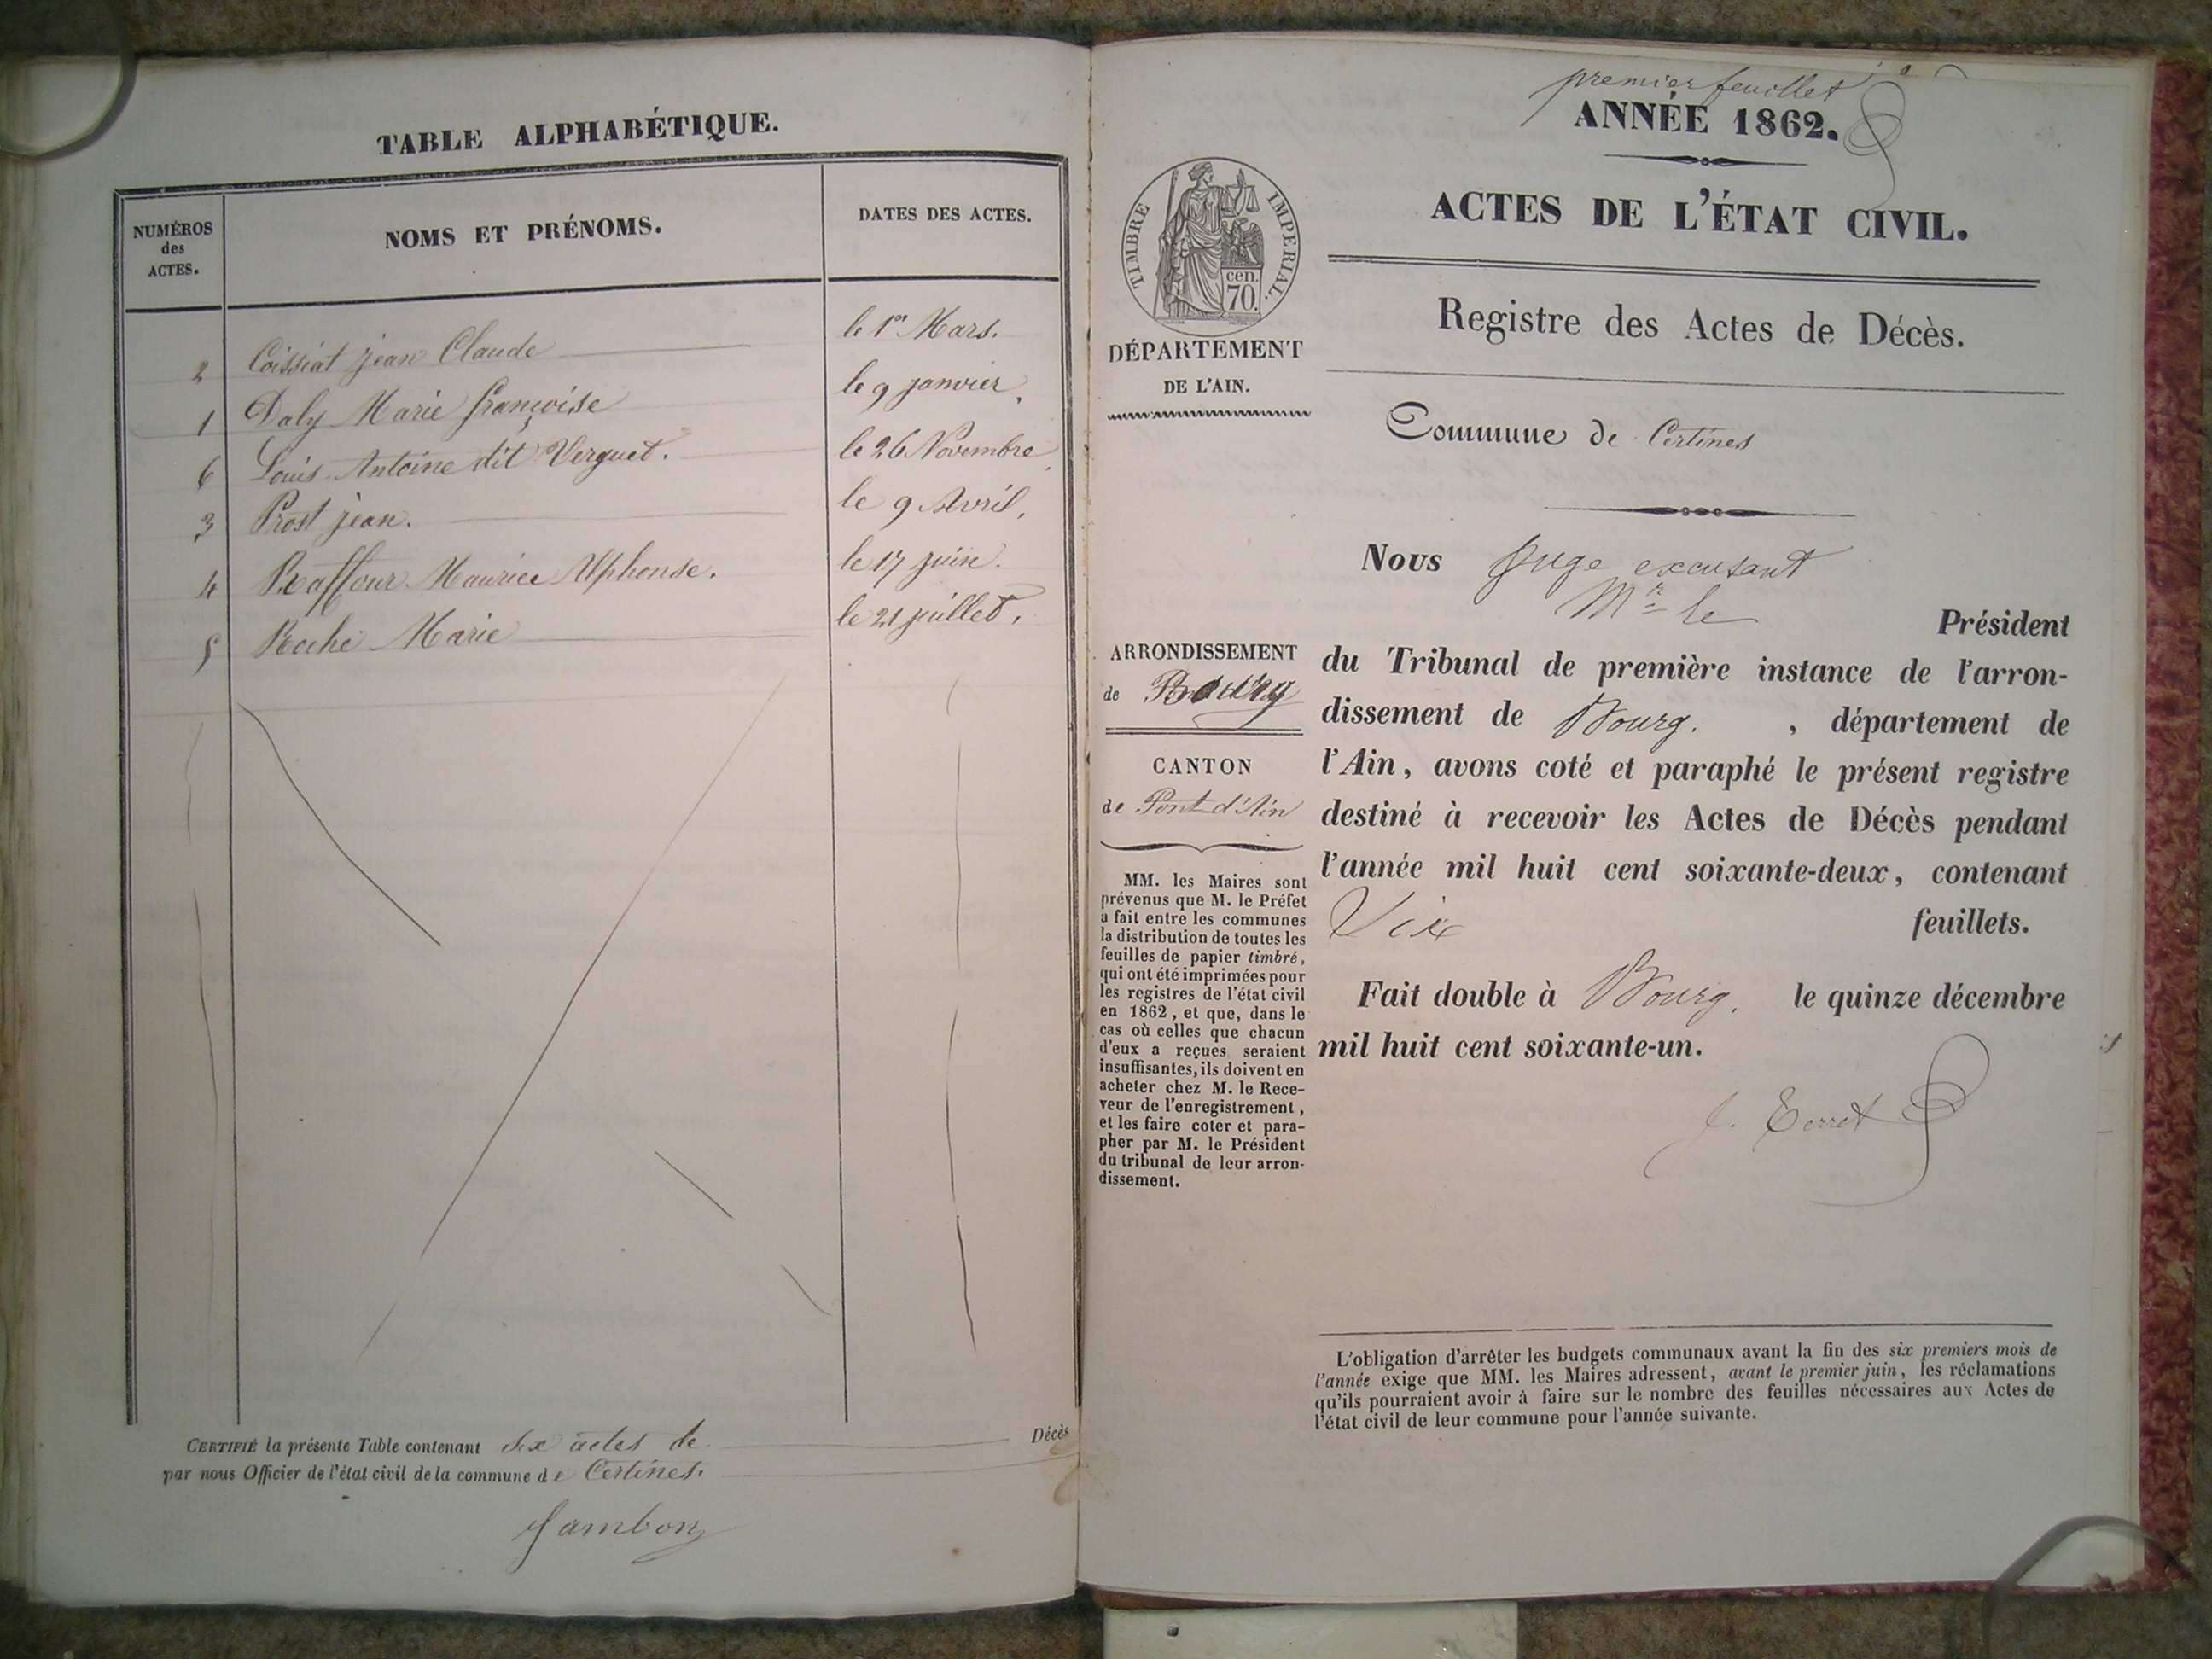 TABLE ALPHABÉTIQUE.
NUMÉROS
des
ACTES.
NOMS ET PRÉNOMS.
DATES DES ACTES.
2 Coissiat jean Claude le 1er Mars.
1 Daly Marie françoise le 9 janvier,
6 Louis Antoine dit Verguet. le 26 Novembre
3 Prost jean. le 9 Avril,
4 Raffour Maurice Alphonse. le 17 juin.
5 Roche Marie le 21 juillet,
CERTIFIÉ la présente Table contenant six actes de Décès
par nous Officier de l'état civil de la commune de Certines.
Jambon
premier feuillet
ANNÉE 1862.
TIMBRE IMPERIAL.
cen.
70.
ACTES DE L'ÉTAT CIVIL.
Registre des Actes de Décès.
DÉPARTEMENT
DE L'AIN.
Commune de Certines
Nous Juge excusant
Mr le
Président
du Tribunal de première instance de l'arron-
dissement de Bourg. , département de
l'Ain, avons coté et paraphé le présent registre
destiné à recevoir les Actes de Décès pendant
l'année mil huit cent soixante-deux, contenant
feuillets.
Fait double à Bourg, le quinze décembre
mil huit cent soixante-un.
J. Terret
ARRONDISSEMENT
de Bourg
CANTON
de Pont d'Ain
MM. les Maires sont
prévenus que M. le Préfet
a fait entre les communes
la distribution de toutes les
feuilles de papier timbré,
qui ont été imprimées pour
les registres de l'état civil
en 1862, et que, dans le
cas où celles que chacun
d'eux a reçues seraient
insuffisantes, ils doivent en
acheter chez M. le Rece-
veur de l'enregistrement,
et les faire coter et para-
pher par M. le Président
du tribunal de leur arron-
dissement.
L'obligation d'arrêter les budgets communaux avant la fin des six premiers mois de
l'année exige que MM. les Maires adressent, avant le premier juin, les réclamations
qu'ils pourraient avoir à faire sur le nombre des feuilles nécessaires aux Actes de
l'état civil de leur commune pour l'année suivante.